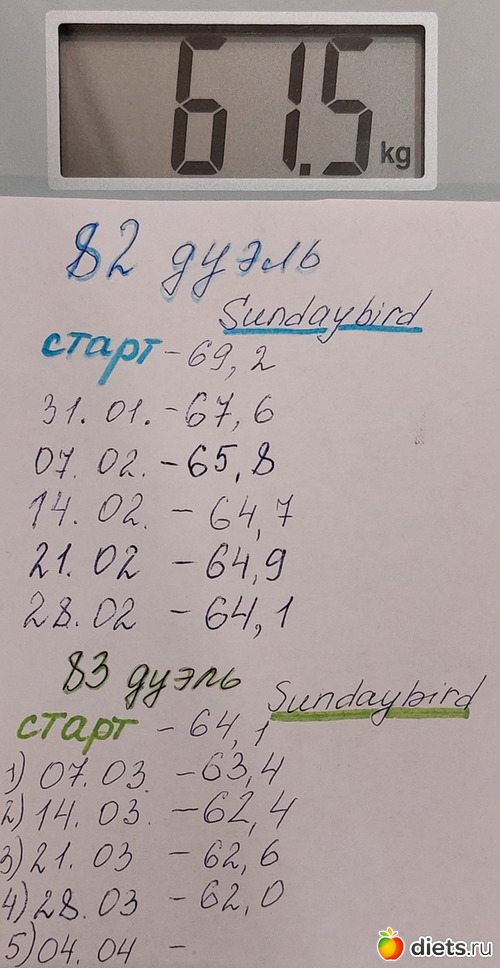 61.5 kg
82 дуэль
Sundaybird
старт - 69,2
31. 01. - 67,6
07. 02. - 65,8
14. 02. - 64,7
21. 02 - 64,9
28. 02 - 64,1
83 дуэль
Sundaybird
старт - 64,1
1) 07. 03. - 63,4
2) 14. 03. - 62,4
3) 21. 03 - 62,6
4) 28. 03 - 62,0
5) 04. 04 -
diets.ru